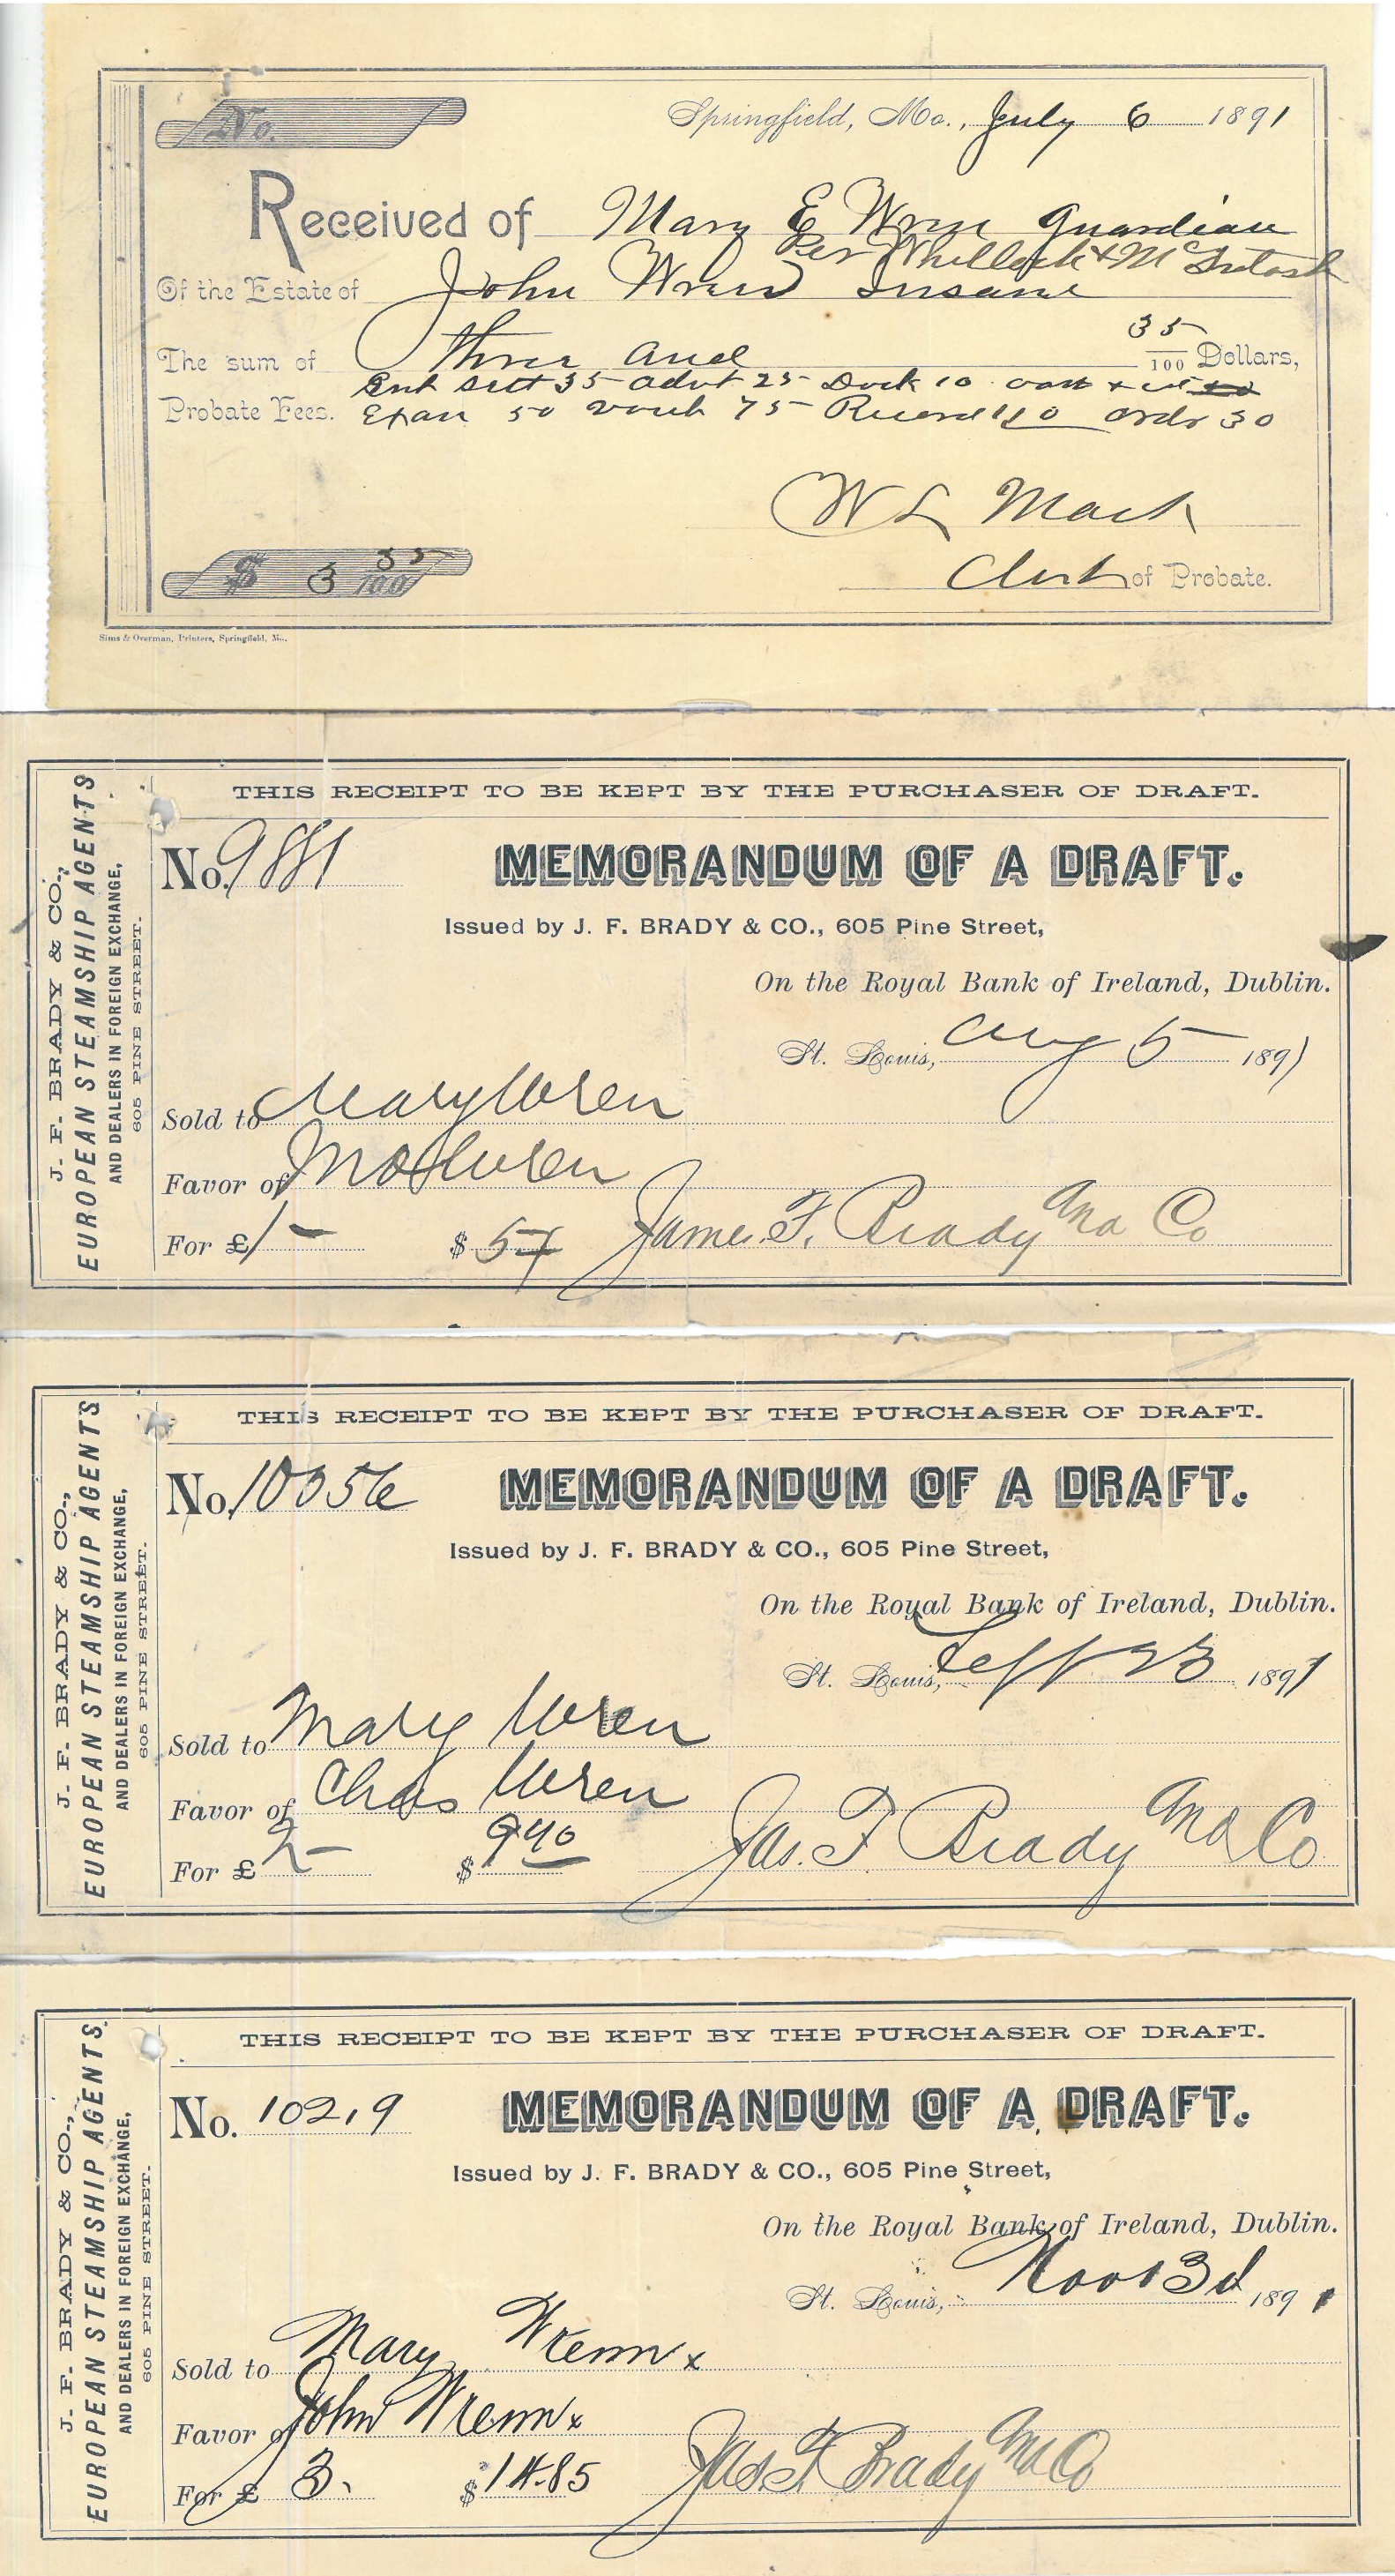 No.
Springfield, Mo., July 6 1891
Received of Mary E Wren Guardian
Per Whillock & McIntosh
Of the Estate of John Wren Insane
The sum of three and 35/100 Dollars,
Ent Sett 35 advt 25 Dock 10
Probate Fees. Exam 50 vouch 75 Record 110 ordr 30
W L Mack
Clerk of Probate.
$ 3 35/100
Sims & Overman, Printers, Springfield, Mo.
J. F. BRADY & CO.,
EUROPEAN STEAMSHIP AGENTS
AND DEALERS IN FOREIGN EXCHANGE,
605 PINE STREET.
THIS RECEIPT TO BE KEPT BY THE PURCHASER OF DRAFT.
No. 9881 MEMORANDUM OF A DRAFT.
Issued by J. F. BRADY & CO., 605 Pine Street,
On the Royal Bank of Ireland, Dublin.
St. Louis, Aug 5 1891
Sold to Mary Wren
Favor of Wren
For £ 1 – $ 5 James F. Brady and Co
J. F. BRADY & CO.,
EUROPEAN STEAMSHIP AGENTS
AND DEALERS IN FOREIGN EXCHANGE,
605 PINE STREET.
THIS RECEIPT TO BE KEPT BY THE PURCHASER OF DRAFT.
No. 10056 MEMORANDUM OF A DRAFT.
Issued by J. F. BRADY & CO., 605 Pine Street,
On the Royal Bank of Ireland, Dublin.
St. Louis, Sept 23 1891
Sold to Mary Wren
Favor of Chas Wren
For £ 2 – $ 9 90 Jas. F. Brady and Co
J. F. BRADY & CO.,
EUROPEAN STEAMSHIP AGENTS
AND DEALERS IN FOREIGN EXCHANGE,
605 PINE STREET.
THIS RECEIPT TO BE KEPT BY THE PURCHASER OF DRAFT.
No. 10219 MEMORANDUM OF A DRAFT.
Issued by J. F. BRADY & CO., 605 Pine Street,
On the Royal Bank of Ireland, Dublin.
St. Louis, 3d 1891
Sold to Mary Wrenn x
Favor of John Wrenn x
For £ 3. $ 14.85 Jas F Brady and Co